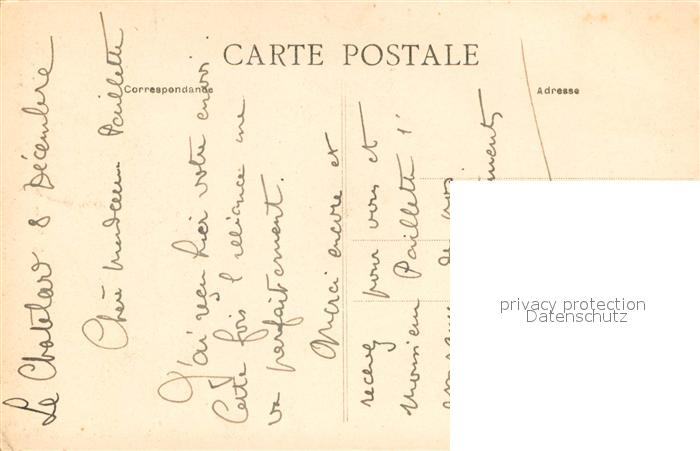 CARTE POSTALE
Correspondance
Adresse
Le Chatelard 8 Décembre
Chère Madame Paillette
J'ai reçu hier votre envoi.
Cette fois l'alliance me
va parfaitement.
Merci encore et
recevez pour vous et
Monsieur Paillette l'
de nos
privacy protection
Datenschutz